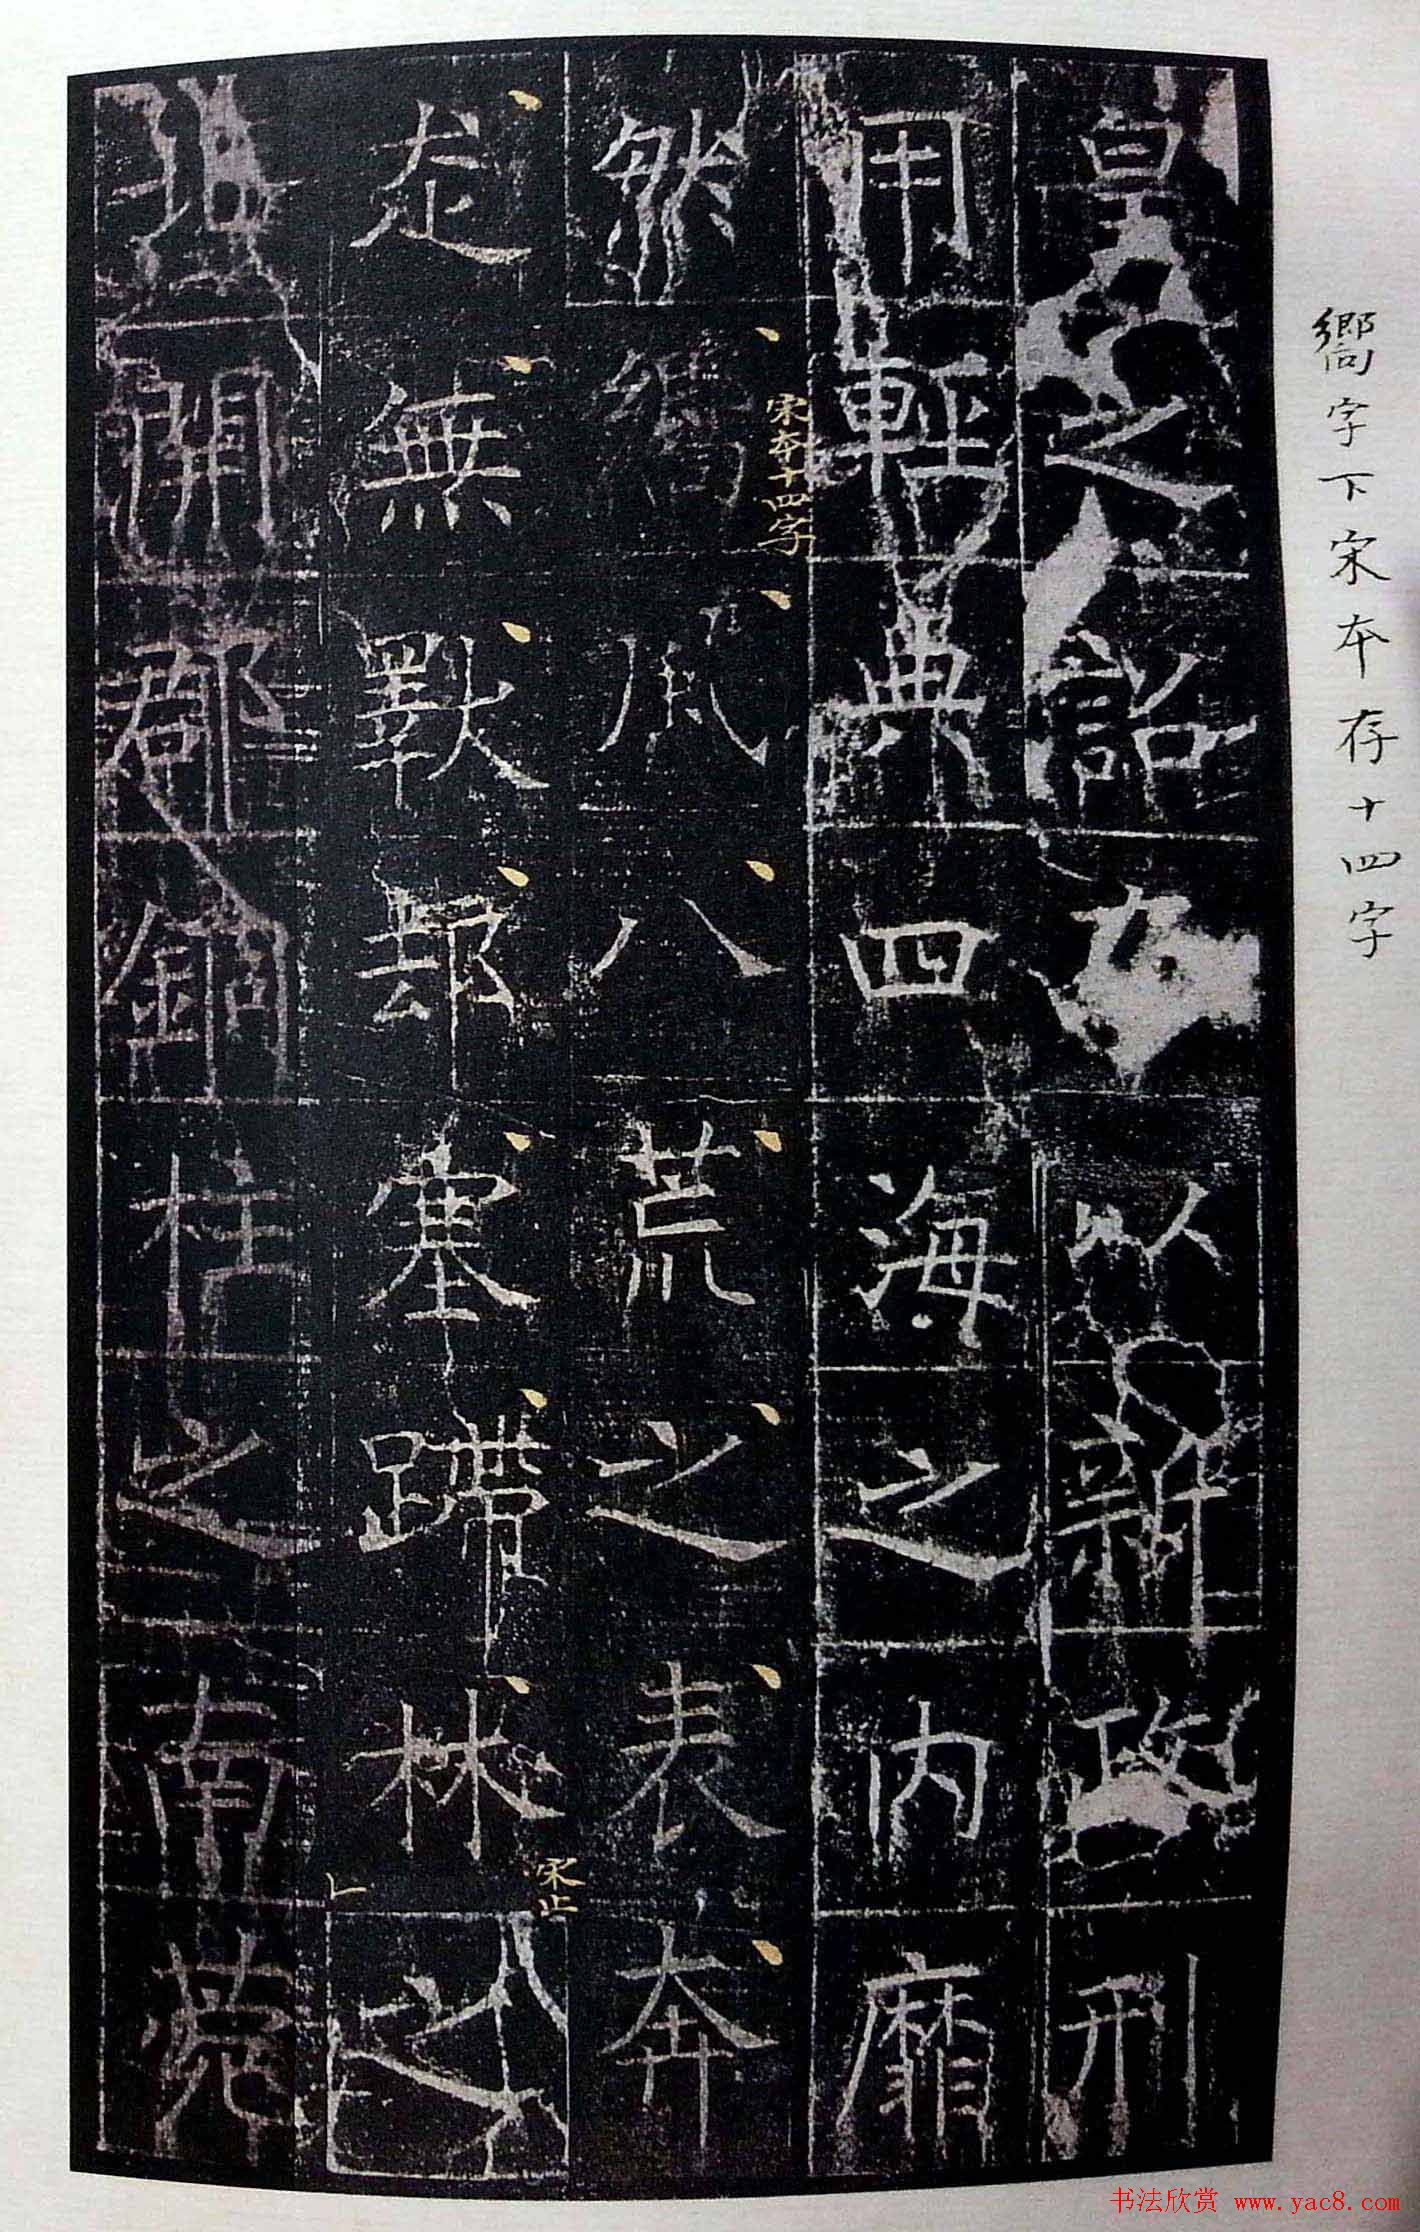 嚮字下宋本存十四字
皇之詔以新政刑
用輕典四海之内靡
然嚮風八荒之表奔
宋本十四字
走無斁塞蹛林之
宋止
北開郡銅柱之南
书法欣赏 www.yac8.com